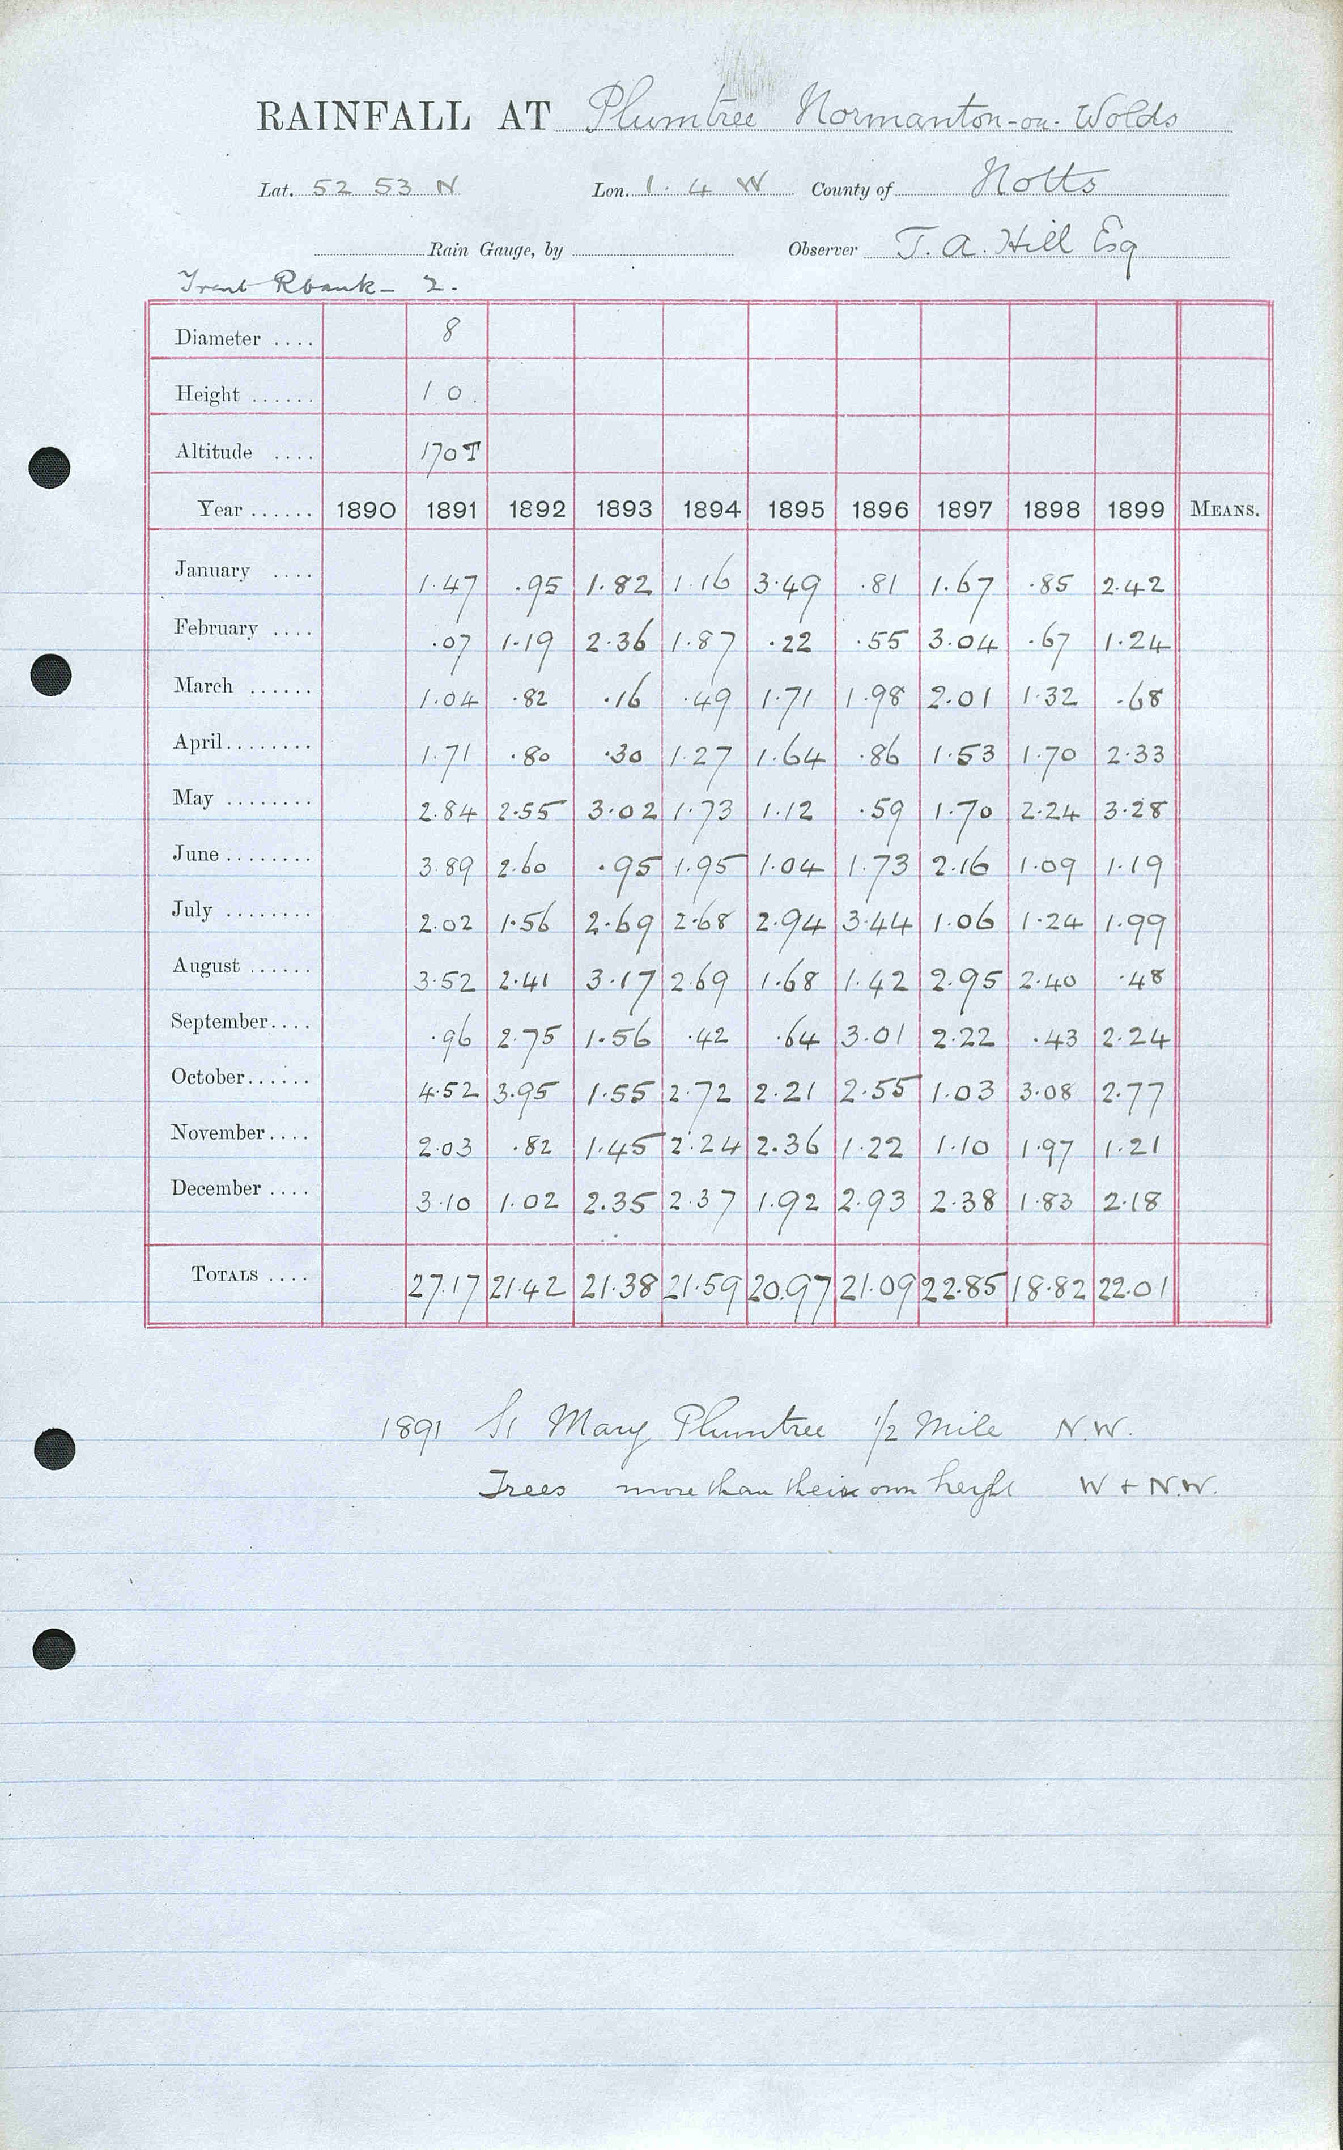 RAINFALL AT Plumtree Normanton-on-Wolds
Lat. 52 53 N Lon. 1. 4 W County of Notts
Rain Gauge, by Observer T. A. Hill Esq
Trent Rbank - 2.
Diameter .... 8
Height ...... 1 0
Altitude .... 170 T
Year ...... 1890 1891 1892 1893 1894 1895 1896 1897 1898 1899 MEANS.
January .... 1.47 .95 1.82 1.16 3.49 .81 1.67 .85 2.42
February .... .07 1.19 2.36 1.87 .22 .55 3.04 .67 1.24
March ...... 1.04 .82 .16 .49 1.71 1.98 2.01 1.32 .68
April ........ 1.71 .80 .30 1.27 1.64 .86 1.53 1.70 2.33
May ........ 2.84 2.55 3.02 1.73 1.12 .59 1.70 2.24 3.28
June ........ 3.89 2.60 .95 1.95 1.04 1.73 2.16 1.09 1.19
July ........ 2.02 1.56 2.69 2.68 2.94 3.44 1.06 1.24 1.99
August ...... 3.52 2.41 3.17 2.69 1.68 1.42 2.95 2.40 .48
September .... .96 2.75 1.56 .42 .64 3.01 2.22 .43 2.24
October ...... 4.52 3.95 1.55 2.72 2.21 2.55 1.03 3.08 2.77
November .... 2.03 .82 1.45 2.24 2.36 1.22 1.10 1.97 1.21
December .... 3.10 1.02 2.35 2.37 1.92 2.93 2.38 1.83 2.18
TOTALS .... 27.17 21.42 21.38 21.59 20.97 21.09 22.85 18.82 22.01
1891 St Mary Plumtree 1/2 Mile N.W.
Trees more than their own height W + N.W.